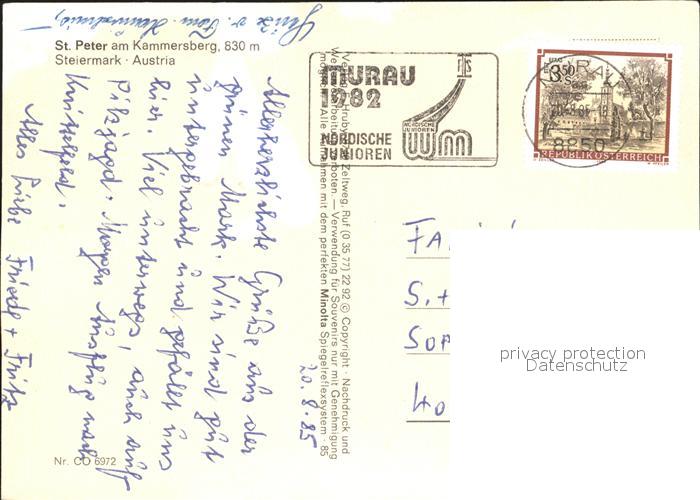 St. Peter am Kammersberg, 830 m
Steiermark · Austria
MURAU
1982
NORDISCHE
JUNIOREN
FIS
NORDISCHE
JUNIOREN
WM
3.50
REPUBLIK ÖSTERREICH
8850
20.8.85
Allerherzlichste Grüße aus der
grünen Mark. Wir sind gut
untergebracht und gefällt uns
hier. Viel unterwegs, auch auf
Pilzjagd. Morgen Ausflug nach
Knittelfeld.
Alles Liebe Friede + Fritz
Grüße v. Fam.
Zeltweg, Ruf (0 35 77) 22 92 © Copyright · Nachdruck und
verboten. — Verwendung für Souvenirs nur mit Genehmigung
mit dem perfekten Minolta Spiegelreflexsystem · 85
privacy protection
Datenschutz
Nr. CO 6972